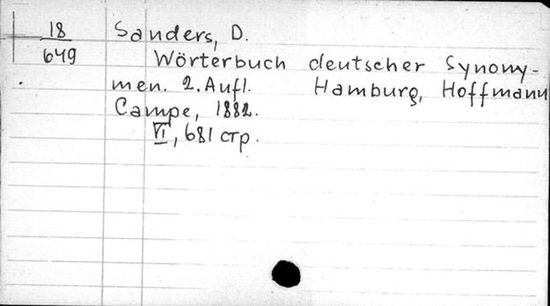 18
649
Sanders, D.
Wörterbuch deutscher Synony-
men. 2. Aufl. Hamburg, Hoffmann
Campe, 1882.
VI, 681 стр.